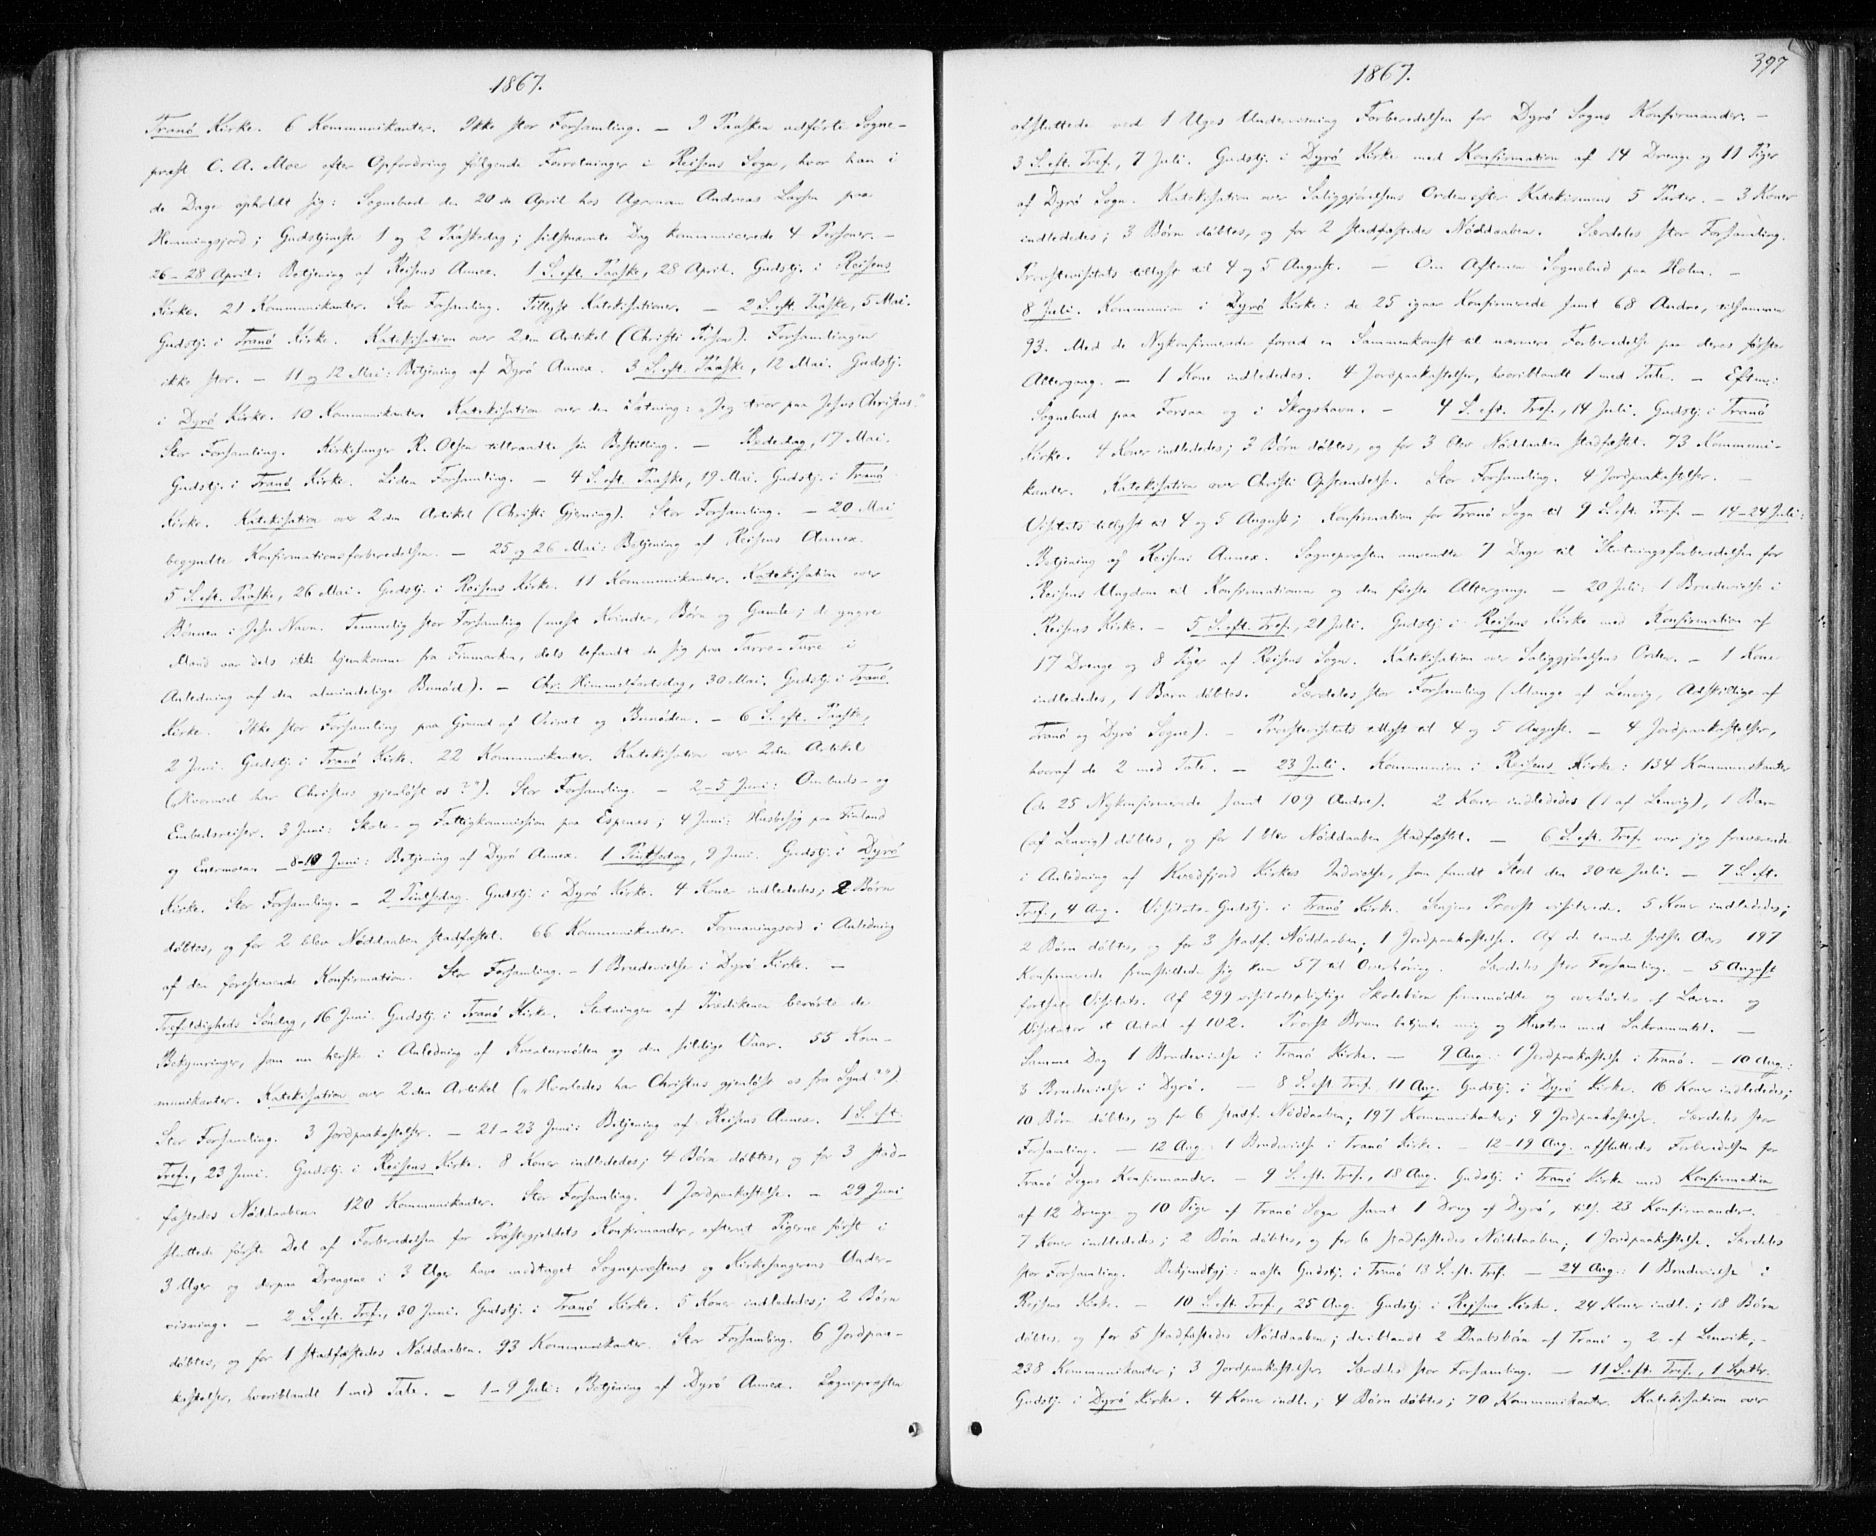 1867.
Tranö Kirke. 6 Kommunikanter. Ikke stor Forsamling. — I Paasken udförte Sogne-
præst C. A. Moe efter Opfordring fölgende Forretninger i Reisens Sogn, hvor han i
de Dage opholdt sig: Sognebud den 20de April hos Andreas Larsen paa
; Gudstjeneste 1 og 2 Paaskedag; sidstnævnte Dag kommunicerede 4 Personer. —
26-28 April: Betjening af Reisens Annex. 1 S. eft. Paaske, 28 April. Gudstj. i Reisens
Kirke. 21 Kommunikanter. Stor Forsamling. Tillyst Katekisationer. — 2 S. eft. Paaske, 5 Mai.
Gudstj. i Tranö Kirke. Katekisation over 2den Artikel (Christi Person). Forsamlingen
ikke stor. — 11 og 12 Mai: Betjening af Dyrö Annex. 3 S. eft. Paaske, 12 Mai. Gudstj.
i Dyrö Kirke. 10 Kommunikanter. Katekisation over den Sætning: „Jeg tror paa Jesus Christus."
Stor Forsamling. Kirkesanger R. Olsen tiltraadte sin Bestilling. — Bededag, 17 Mai.
Gudstj. i Tranö Kirke. Liden Forsamling. — 4 S. eft. Paaske, 19 Mai. Gudstj. i Tranö
Kirke. Katekisation over 2den Artikel (Christi Gjerning). Stor Forsamling. — 20 Mai
begyndte Konfirmationsforberedelsen. — 25 og 26 Mai: Betjening af Reisens Annex.
5 S. eft. Paaske, 26 Mai. Gudstj. i Reisens Kirke. 11 Kommunikanter. Katekisation over
Bönnen i Jesu Navn. Temmelig stor Forsamling (mest Kvinder, Börn og Gamle; de yngre
Mænd var dels ikke hjemkomne fra Finmarken, dels befandt de sig paa Ture i
Anledning af den almindelige Bunöd). — Chr. Himmelfartsdag, 30 Mai. Gudstj. i Tranö
Kirke. Ikke stor Forsamling paa Grund af Veiret og Bunöden. — 6 S. eft. Paaske,
2 Juni. Gudstj. i Tranö Kirke. 22 Kommunikanter. Katekisation over 2den Artikel
(„Hvormed har Christus gjenlöst os?"). Stor Forsamling. — 2-5 Juni: Ombuds- og
Embedsreiser. 3 Juni: Skole- og Fattigkommission paa Espenes; 4 Juni: Husbesög paa Finland
og . — 8-10 Juni: Betjening af Dyrö Annex. 1 Pintsedag, 9 Juni. Gudstj. i Dyrö
Kirke. Stor Forsamling. — 2 Pintsedag. Gudstj. i Dyrö Kirke. 4 Koner indlededes; 2 Börn
döbtes, og for 2 blev Nöddaaben stadfæstet. 66 Kommunikanter. Formaningsord i Anledning
af den forestaaende Konfirmation. Stor Forsamling. — 1 Brudevielse i Dyrö Kirke. —
Trefoldigheds Söndag, 16 Juni. Gudstj. i Tranö Kirke. Slutningen af Prædikenen berörte de
Bekymringer, som nu herske i Anledning af Kreaturnöden og den sildige Vaar. 55 Kom-
munikanter. Katekisation over 2den Artikel („Hvorledes har Christus gjenlöst os fra Synd?").
Stor Forsamling. 3 Jordpaakastelser. — 21-23 Juni: Betjening af Reisens Annex. 1 S. eft.
Tref., 23 Juni. Gudstj. i Reisens Kirke. 8 Koner indlededes; 4 Börn döbtes, og for 3 stad-
fæstedes Nöddaaben. 120 Kommunikanter. Stor Forsamling. 1 Jordpaakastelse. — 29 Juni
sluttede förste Del af Forberedelsen for Præstegjeldets Konfirmander, efterat Pigerne först i
3 Uger og derpaa Drengene i 3 Uger have modtaget Sognepræstens og Kirkesangerens Under-
visning. — 2 S. eft. Tref., 30 Juni. Gudstj. i Tranö Kirke. 5 Koner indlededes; 2 Börn
döbtes, og for 1 stadfæstedes Nöddaaben. 93 Kommunikanter. Stor Forsamling. 6 Jordpaa-
kastelser, hvoriblandt 1 med Tale. — 1-9 Juli: Betjening af Dyrö Annex. Sognepræsten
1867.
397
afsluttede ved 1 Uges Undervisning Forberedelsen for Dyrö Sogns Konfirmander. —
3 S. eft. Tref., 7 Juli. Gudstj. i Dyrö Kirke med Konfirmation af 14 Drenge og 11 Piger
af Dyrö Sogn. Katekisation over Saliggjörelsens Orden efter Katekismens 5 Parter. — 3 Koner
indlededes; 3 Börn döbtes, og for 2 stadfæstedes Nöddaaben. Særdeles stor Forsamling.
Provstevisitats tillyst til 4 og 5 August. — Om Aftenen Sognebud paa Holm. —
8 Juli. Kommunion i Dyrö Kirke: de 25 igaar Konfirmerede samt 68 Andre, tilsammen
93. Med de Nykonfirmerede forud en Sammenkomst til nærmere Forberedelse paa deres förste
Altergang. — 1 Kone indlededes. 4 Jordpaakastelser, hvoriblandt 1 med Tale. — Eftm.:
Sognebud paa Forsaa og i Skogshavn. — 4 S. eft. Tref., 14 Juli. Gudstj. i Tranö
Kirke. 4 Koner indlededes; 3 Börn döbtes, og for 3 blev Nöddaaben stadfæstet. 73 Kommuni-
kanter. Katekisation over Christi Opstandelse. Stor Forsamling. 4 Jordpaakastelser. —
Visitats tillyst til 4 og 5 August; Konfirmation for Tranö Sogn til 9 S. eft. Tref. — 14-24 Juli:
Betjening af Reisens Annex. Sognepræsten anvendte 7 Dage til Slutningsforberedelsen for
Reisens Ungdom til Konfirmationen og den förste Altergang. — 20 Juli: 1 Brudevielse i
Reisens Kirke. — 5 S. eft. Tref., 21 Juli. Gudstj. i Reisens Kirke med Konfirmation af
17 Drenge og 8 Piger af Reisens Sogn. Katekisation over Saliggjörelsens Orden. — 1 Kone
indlededes, 1 Barn döbtes. Særdeles stor Forsamling (Mange af Lenvig, Adskillige af
Tranö og Dyrö Sogne). — Provstevisitats tillyst til 4 og 5 August. — 4 Jordpaakastelser,
hvoraf de 2 med Tale. — 23 Juli. Kommunion i Reisens Kirke: 134 Kommunikanter
(de 25 Nykonfirmerede samt 109 Andre). 2 Koner indlededes (1 af Lenvig), 1 Barn
(af Lenvig) döbtes, og for 1 blev Nöddaaben stadfæstet. — 6 S. eft. Tref. var jeg fraværende
i Anledning af Kvædfjord Kirkes Indvielse, som fandt Sted den 30te Juli. — 7 S. eft.
Tref., 4 Aug. Visitats-Gudstj. i Tranö Kirke. Senjens Provst visiterede. 5 Koner indlededes;
2 Börn döbtes, og for 3 stadf. Nöddaaben; 1 Jordpaakastelse. Af de trende sidste Aars 197
Konfirmerede fremstillede sig kun 57 til Overhöring. Særdeles stor Forsamling. — 5 August
fortsat Visitats. Af 299 visitatspligtige Skolebörn fremmödte og overhörtes af Lærerne og
Visitator et Antal af 102. Provst Bruun betjente mig og Hustru med Sakramentet. —
Samme Dag 1 Brudevielse i Tranö Kirke. — 9 Aug.: 1 Jordpaakastelse i Tranö. — 10 Aug.:
3 Brudevielser i Dyrö. — 8 S. eft. Tref. 11 Aug. Gudstj. i Dyrö Kirke. 16 Koner indlededes;
10 Börn döbtes, og for 6 stadf. Nöddaaben; 197 Kommunikanter; 9 Jordpaakastelser. Særdeles stor
Forsamling. — 12 Aug.: 1 Brudevielse i Tranö Kirke. — 12-19 Aug. afsluttedes Forberedelsen for
Tranö Sogns Konfirmander. — 9 S. eft. Tref., 18 Aug. Gudstj. i Tranö Kirke med Konfirmation
af 12 Drenge og 10 Piger af Tranö Sogn samt 1 Dreng af Dyrö, tils. 23 Konfirmander.
7 Koner indlededes; 2 Börn döbtes, og for 6 stadfæstedes Nöddaaben; 1 Jordpaakastelse. Særdeles
stor Forsamling. Bekjendtgj.: næste Gudstj. i Tranö 13 S. eft. Tref. — 24 Aug.: 1 Brudevielse i
Reisens Kirke. — 10 S. eft. Tref., 25 Aug. Gudstj. i Reisens Kirke. 24 Koner indl.; 18 Börn
döbtes, og for 5 stadfæstedes Nöddaaben; deriblandt 2 Daabsbörn af Tranö og 2 af Lenvik; —
238 Kommunikanter; 3 Jordpaakastelser. Særdeles stor Forsamling. — 11 S. eft. Tref., 1 Septbr.
Gudstj. i Dyrö Kirke. 4 Koner indl.; 4 Börn döbtes; 70 Kommunikanter. Katekisation over